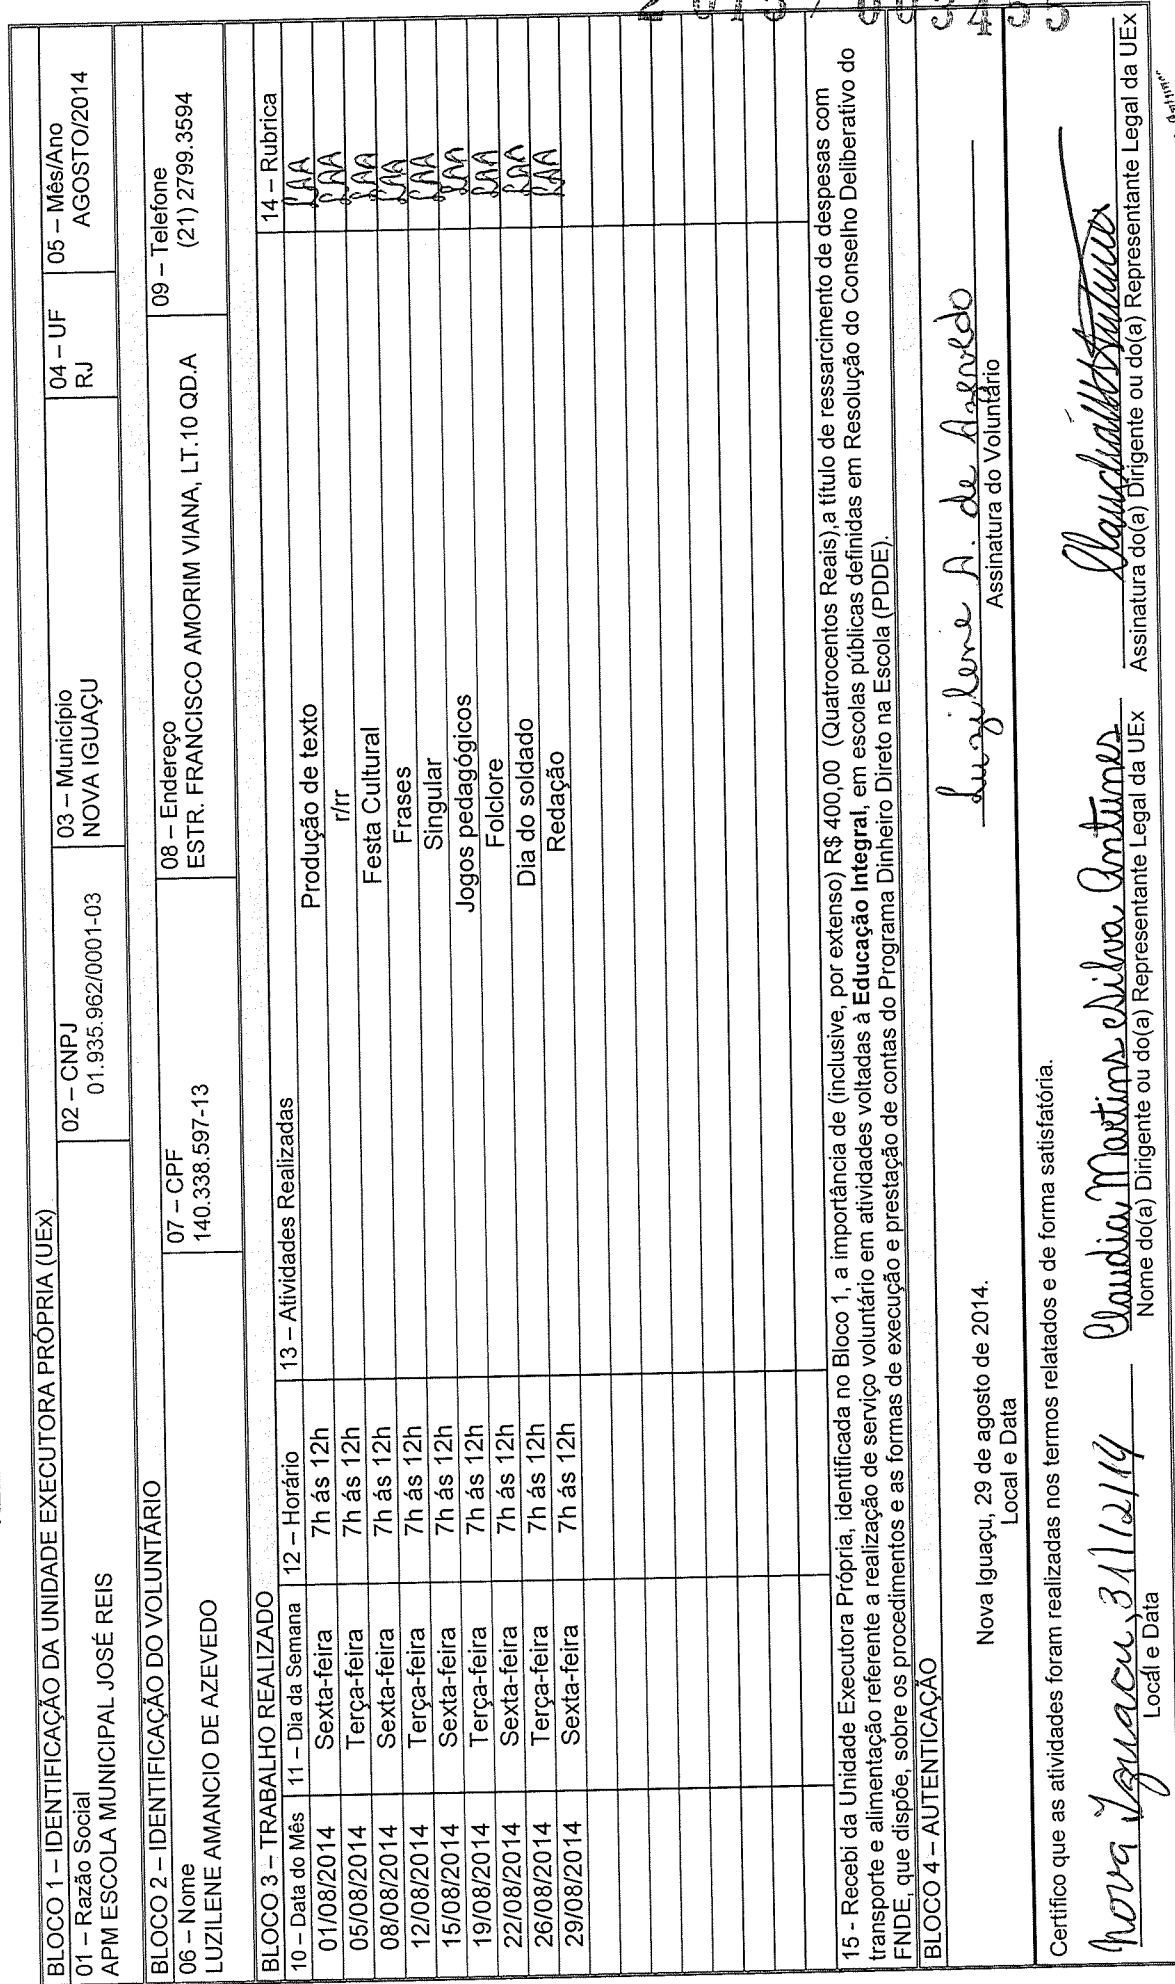 BLOCO 1 – IDENTIFICAÇÃO DA UNIDADE EXECUTORA PRÓPRIA (UEx)
01 – Razão Social 02 – CNPJ 03 – Município 04 – UF 05 – Mês/Ano
APM ESCOLA MUNICIPAL JOSÉ REIS 01.935.962/0001-03 NOVA IGUAÇU RJ AGOSTO/2014
BLOCO 2 – IDENTIFICAÇÃO DO VOLUNTÁRIO
06 – Nome 07 – CPF 08 – Endereço 09 – Telefone
LUZILENE AMANCIO DE AZEVEDO 140.338.597-13 ESTR. FRANCISCO AMORIM VIANA, LT.10 QD.A (21) 2799.3594
BLOCO 3 – TRABALHO REALIZADO
10 – Data do Mês 11 – Dia da Semana 12 – Horário 13 – Atividades Realizadas 14 – Rubrica
01/08/2014 Sexta-feira 7h ás 12h Produção de texto LAA
05/08/2014 Terça-feira 7h ás 12h r/rr LAA
08/08/2014 Sexta-feira 7h ás 12h Festa Cultural LAA
12/08/2014 Terça-feira 7h ás 12h Frases LAA
15/08/2014 Sexta-feira 7h ás 12h Singular LAA
19/08/2014 Terça-feira 7h ás 12h Jogos pedagógicos LAA
22/08/2014 Sexta-feira 7h ás 12h Folclore LAA
26/08/2014 Terça-feira 7h ás 12h Dia do soldado LAA
29/08/2014 Sexta-feira 7h ás 12h Redação LAA
15 - Recebi da Unidade Executora Própria, identificada no Bloco 1, a importância de (inclusive, por extenso) R$ 400,00 (Quatrocentos Reais),a título de ressarcimento de despesas com
transporte e alimentação referente a realização de serviço voluntário em atividades voltadas à Educação Integral, em escolas públicas definidas em Resolução do Conselho Deliberativo do
FNDE, que dispõe, sobre os procedimentos e as formas de execução e prestação de contas do Programa Dinheiro Direto na Escola (PDDE).
BLOCO 4 – AUTENTICAÇÃO
Nova Iguaçu, 29 de agosto de 2014. Luzilene A. de Azevedo
Local e Data Assinatura do Voluntário
Certifico que as atividades foram realizadas nos termos relatados e de forma satisfatória.
Nova Iguacu, 31/12/14 Claudia Martins e Silva Antunes
Local e Data Nome do(a) Dirigente ou do(a) Representante Legal da UEx Assinatura do(a) Dirigente ou do(a) Representante Legal da UEx